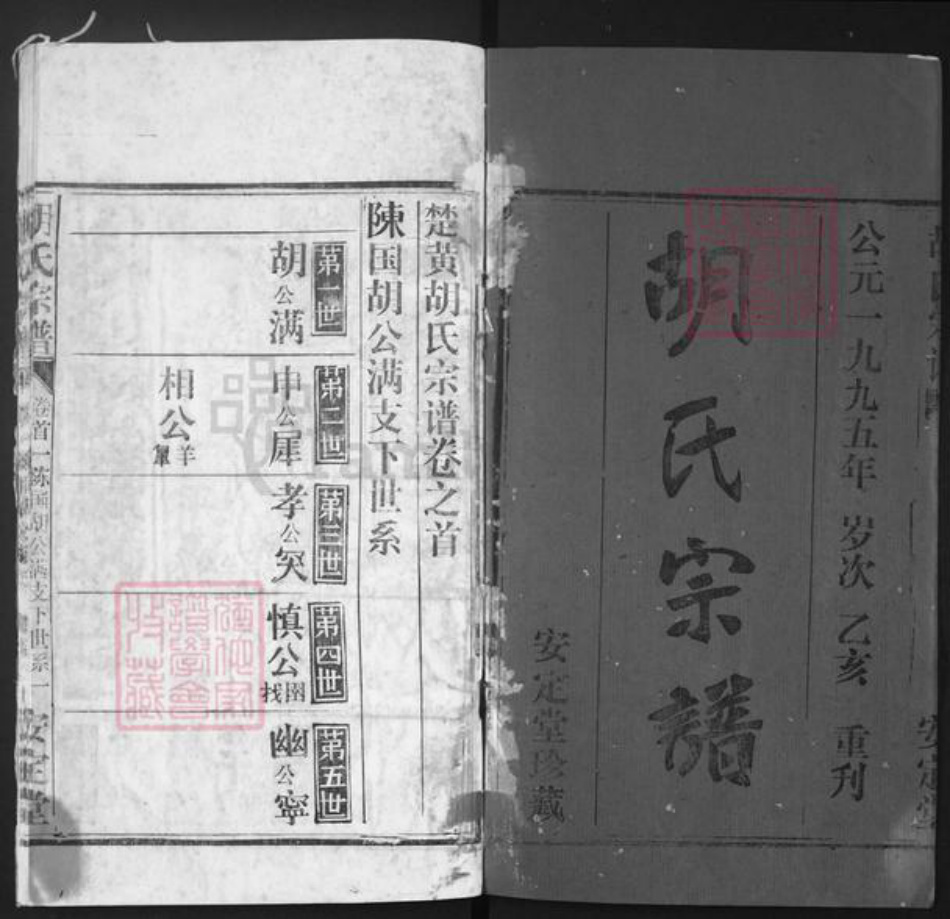 公元一九九五年 岁次 乙亥 重刊
胡氏宗譜
安定堂珍藏
安定堂
楚黄胡氏宗谱卷之首
陳国胡公满支下世系
第一世
胡公满
第二世
申公犀
相公
第三世
孝公突
第四世
慎公圉
第五世
幽公寧
胡氏宗譜
卷首一陈国胡公满支下世系一
安定堂